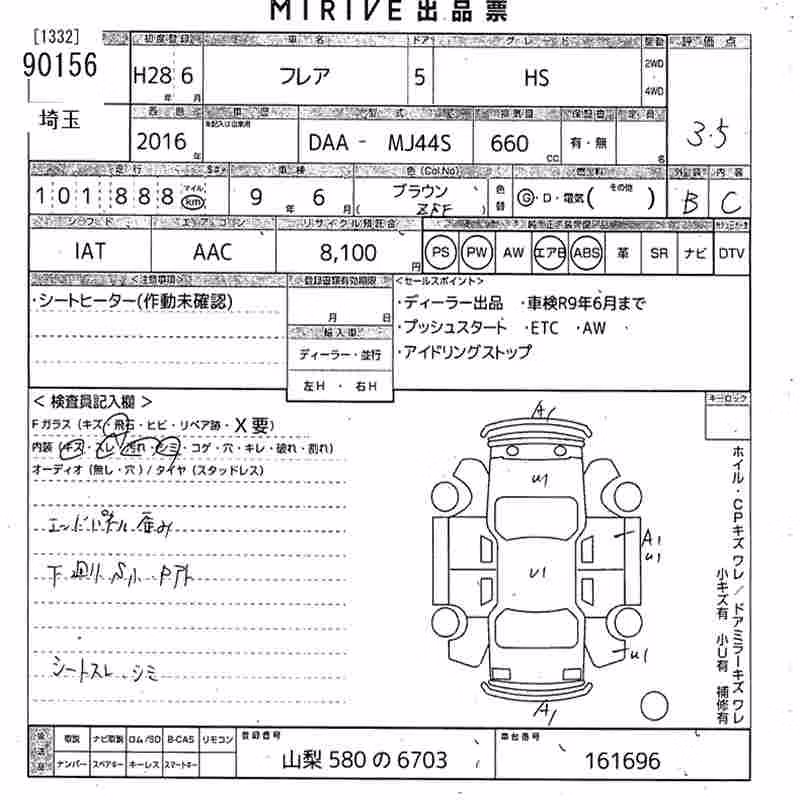 MIRIVE 出品票
[1332]
90156
埼玉
初度登録 車名 ドア グレード 駆動 評価点
H28 6 フレア 5 HS 2WD
年 月 4WD
西暦 車歴 型式 排気量 保証書 定員
2016 年 DAA - MJ44S 660 CC 有・無 名 3.5
走行 車検 色(Col.No) 燃料 外装 内装
101,888 マイル km 9 年 6 月 ブラウン ( ) 色替 G・D・電気( その他 ) B C
シフト エアコン リサイクル預託金
IAT AAC 8,100 円 PS PW AW エアB ABS 革 SR ナビ DTV
<注意事項> 登録書類有効期限 <セールスポイント>
・シートヒーター(作動未確認) 月 日 ・ディーラー出品 ・車検R9年6月まで
輸入車 ・プッシュスタート ・ETC ・AW
ディーラー・並行 ・アイドリングストップ
左H ・ 右H
< 検査員記入欄 > キーロック
Fガラス(キズ・飛石・ヒビ・リペア跡・X要)
内装(キズ・スレ・汚れ・シミ・コゲ・穴・キレ・破れ・割れ)
オーディオ(無し・穴)/タイヤ(スタッドレス)
エンドパネル歪み
下廻りS小 Pアト
シートスレ・シミ
A1
U1
A1
U1
U1
U1
A1
ホイル・CPキズ ワレ / ドアミラーキズ ワレ
小キズ有 小U有 補修有
後送品 取説 ナビ取説 ロム/SD B-CAS リモコン 登録番号 車台番号
ナンバー スペアキー キーレス スマートキー 山梨 580 の 6703 161696